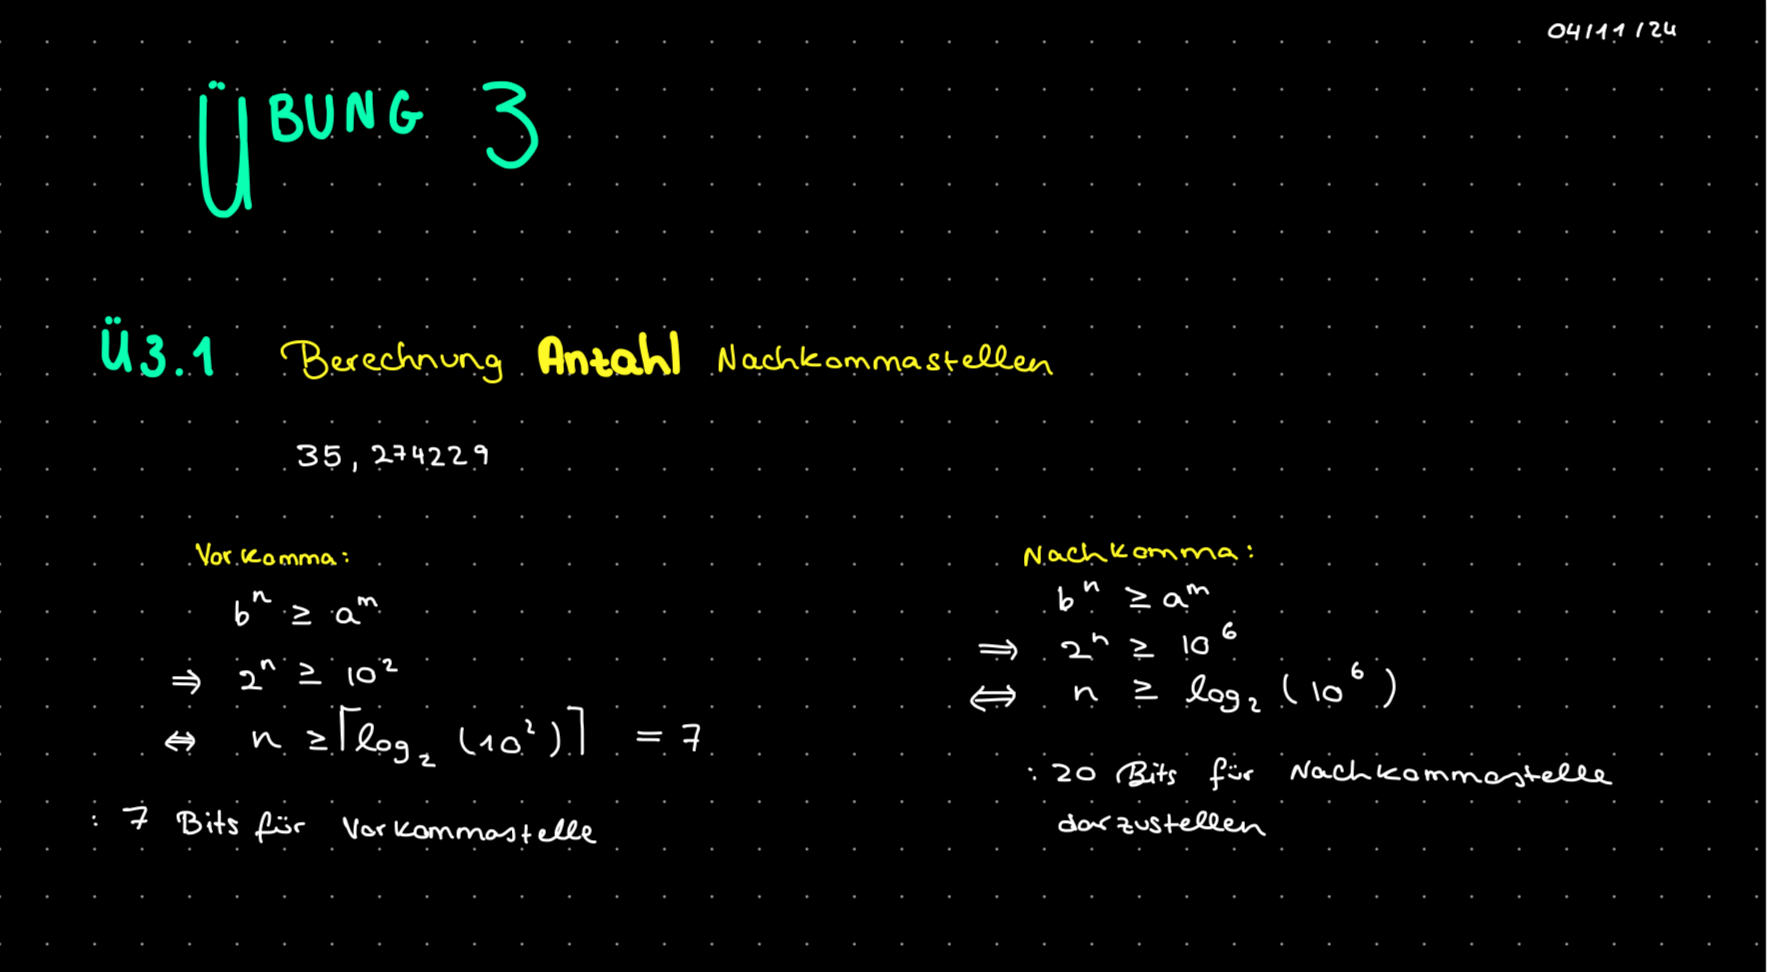 04/11/24
ÜBUNG 3
Ü3.1 Berechnung Anzahl Nachkommastellen
35,274229
Vorkomma:
bⁿ ≥ aᵐ
⇒ 2ⁿ ≥ 10²
⇔ n ≥ ⌈log₂ (10²)⌉ = 7
: 7 Bits für Vorkommastelle
Nachkomma:
bⁿ ≥ aᵐ
⇒ 2ⁿ ≥ 10⁶
⇔ n ≥ log₂ (10⁶)
: 20 Bits für Nachkommastelle
darzustellen